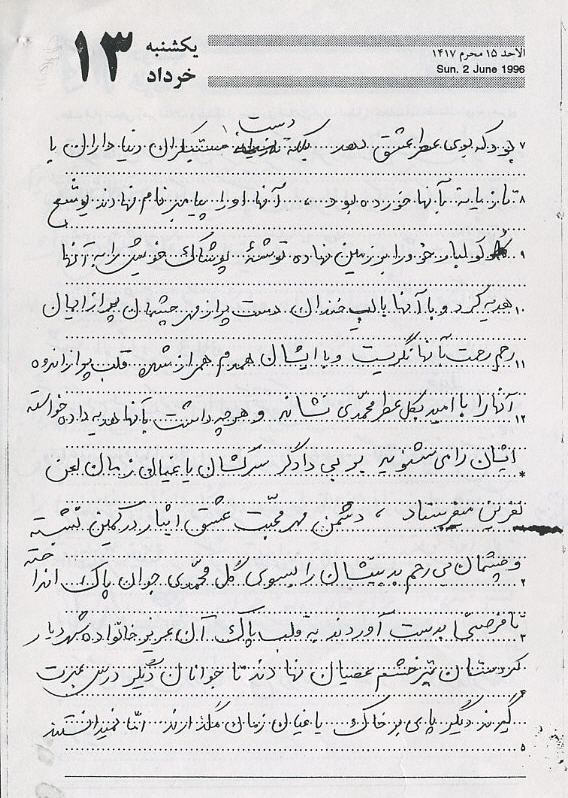 ۱۳
یکشنبه
خرداد
الاحد ۱۵ محرم ۱۴۱۷
Sun. 2 June 1996
دست
۷ بود که بوی عطر عشق دهد مستکبران دنیا داران با
۸ تازیانه بآنها خورده بود، آنها او را پیامبر نام نهادند
۹ کوله بار خود را بر زمین نهاده توشهٔ پوشاک خویش را به آنها
۱۰ هدیه کرد و با آنها با لب خندان، دست پر از مهر چشمان پر از ایمان
۱۱ رحم رحمت بآنها نگریست و با ایشان همدم همراز شده قلب پر از اندوه
۱۲ آنها را با امید بگل عطر محمّدی نشاند و هر چه داشت بآنها هدیه داده خواسته
* ایشان را می شنوید بر بی دادگر سرکشان یاغیان زمان لعن
نفرین میفرستاد، دشمن مهر محبّت عشق ایثار در کمین نشسته
۲ و چشمان بی رحم بد بینشان را بسوی گل محمّدی جوان پاک انداخته
۳ تا فرصتی بدست آوردند به قلب پاک آن عزیز خانواده
۴ کردستان تیر خشم عصیان نهادند تا جوانان دیگر درس عبرت
گیرند دیگر پای بر خاک یاغیان زمان نگذارند امّا نمیدانستند
۵